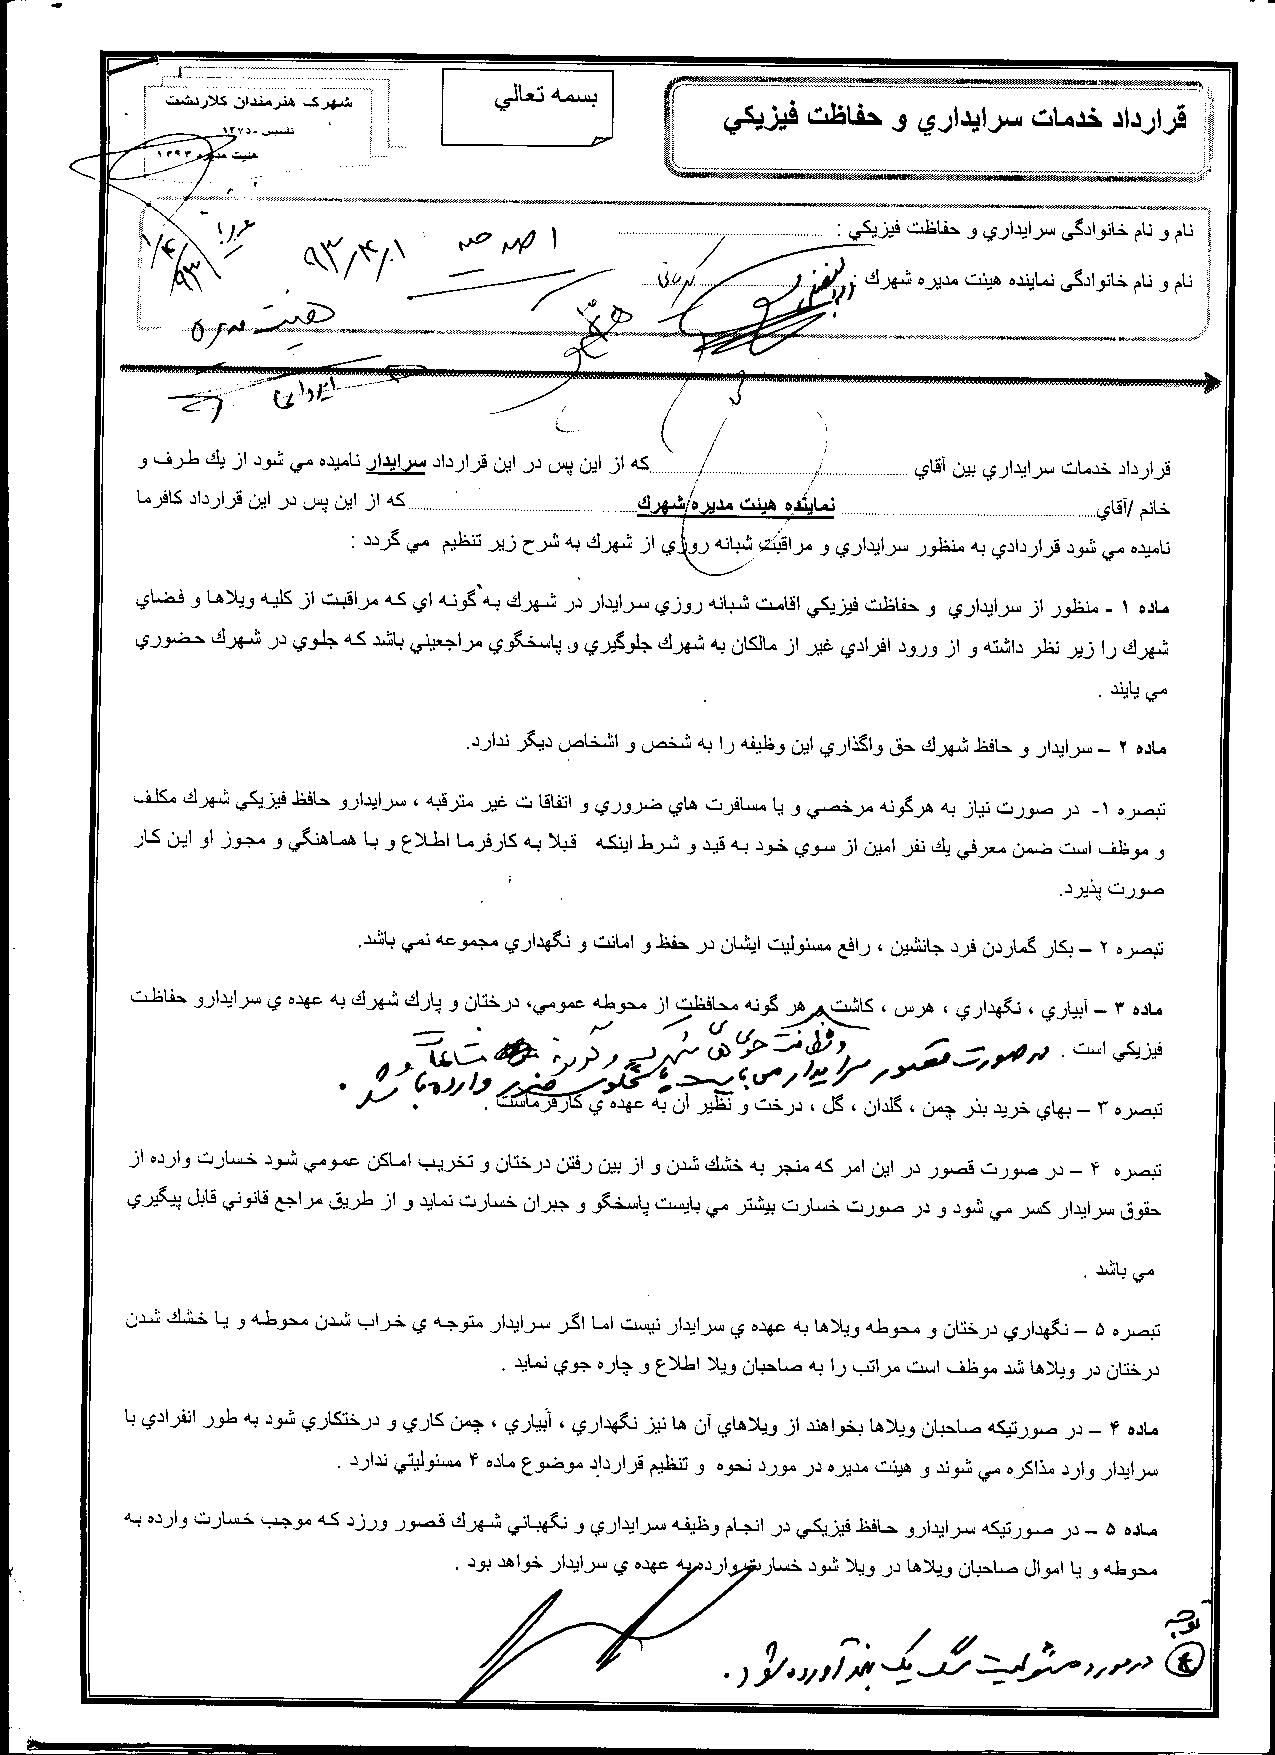 بسمه تعالي
قرارداد خدمات سرايداري و حفاظت فيزيكي
شهرك هنرمندان كلاردشت
تاسيس ۱۳۷۵
هيئت مديره ۱۳۹۳
نام و نام خانوادگی سرايداري و حفاظت فيزيكي :
نام و نام خانوادگی نماينده هيئت مديره شهرك :
۹۳/۴/۱
۹۳/۴/۱
هیئت مدیره
قرارداد خدمات سرايداري بين آقاي كه از اين پس در اين قرارداد سرايدار ناميده مي شود از يك طرف و
خانم /آقاي نماينده هيئت مديره شهرك كه از اين پس در اين قرارداد كافرما
ناميده مي شود قراردادي به منظور سرايداري و مراقبت شبانه روزي از شهرك به شرح زير تنظيم مي گردد :
ماده ۱ - منظور از سرايداري و حفاظت فيزيكي اقامت شبانه روزي سرايدار در شهرك به گونه اي كه مراقبت از كليه ويلاها و فضاي
شهرك را زير نظر داشته و از ورود افرادي غير از مالكان به شهرك جلوگيري و پاسخگوي مراجعيني باشد كه جلوي در شهرك حضوري
مي يابند .
ماده ۲ – سرايدار و حافظ شهرك حق واگذاري اين وظيفه را به شخص و اشخاص ديگر ندارد.
تبصره ۱- در صورت نياز به هرگونه مرخصي و يا مسافرت هاي ضروري و اتفاقا ت غير مترقبه ، سرايدارو حافظ فيزيكي شهرك مكلف
و موظف است ضمن معرفي يك نفر امين از سوي خود به قيد و شرط اينكه قبلا به كارفرما اطلاع و با هماهنگي و مجوز او اين كار
صورت پذيرد.
تبصره ۲ – بكار گماردن فرد جانشين ، رافع مسئوليت ايشان در حفظ و امانت و نگهداري مجموعه نمي باشد.
ماده ۳ – آبياري ، نگهداري ، هرس ، كاشت هر گونه محافظت از محوطه عمومي، درختان و پارك شهرك به عهده ي سرايدارو حفاظت
و نظافت جوی های شهرک و
فيزيكي است . در صورت قصور سرایدار می بایست پاسخگوی ضرر وارده باشد .
تبصره ۳ – بهاي خريد بذر چمن ، گلدان ، گل ، درخت و نظير آن به عهده ي كارفرماست .
تبصره ۴ – در صورت قصور در اين امر كه منجر به خشك شدن و از بين رفتن درختان و تخريب اماكن عمومي شود خسارت وارده از
حقوق سرايدار كسر مي شود و در صورت خسارت بيشتر مي بايست پاسخگو و جبران خسارت نمايد و از طريق مراجع قانوني قابل پيگيري
مي باشد .
تبصره ۵ – نگهداري درختان و محوطه ويلاها به عهده ي سرايدار نيست اما اگر سرايدار متوجه ي خراب شدن محوطه و يا خشك شدن
درختان در ويلاها شد موظف است مراتب را به صاحبان ويلا اطلاع و چاره جوي نمايد .
ماده ۴ – در صورتيكه صاحبان ويلاها بخواهند از ويلاهاي آن ها نيز نگهداري ، آبياري ، چمن كاري و درختكاري شود به طور انفرادي با
سرايدار وارد مذاكره مي شوند و هيئت مديره در مورد نحوه و تنظيم قرارداد موضوع ماده ۴ مسئوليتي ندارد .
ماده ۵ – در صورتيكه سرايدارو حافظ فيزيكي در انجام وظيفه سرايداري و نگهباني شهرك قصور ورزد كه موجب خسارت وارده به
محوطه و يا اموال صاحبان ويلاها در ويلا شود خسارت وارده به عهده ي سرايدار خواهد بود .
توجه
در مورد مسئولیت سگ یک بند آورده شود .